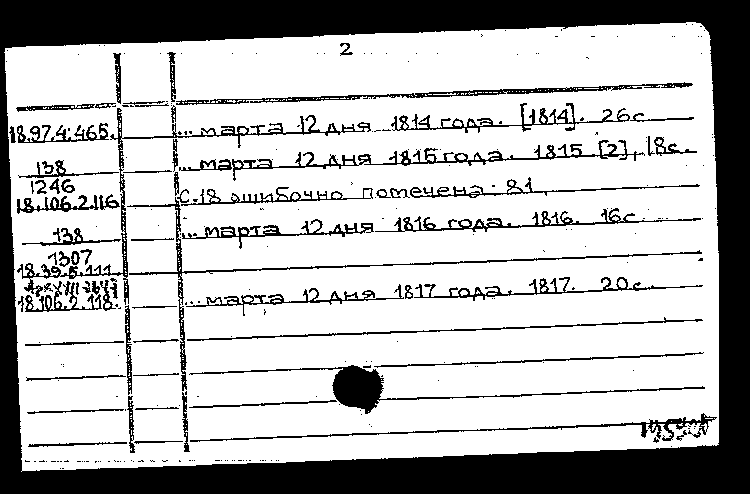 2
18.97.4.465. ... марта 12 дня 1814 года. [1814]. 26с
138 ... марта 12 дня 1815 года. 1815 [2], 18с.
1246
18.106.2.116 С.18 ошибочно помечена: 81
138 ... марта 12 дня 1816 года. 1816. 16с.
1307
18.39.5.111.
18.106.2.118. ... марта 12 дня 1817 года. 1817. 20с.